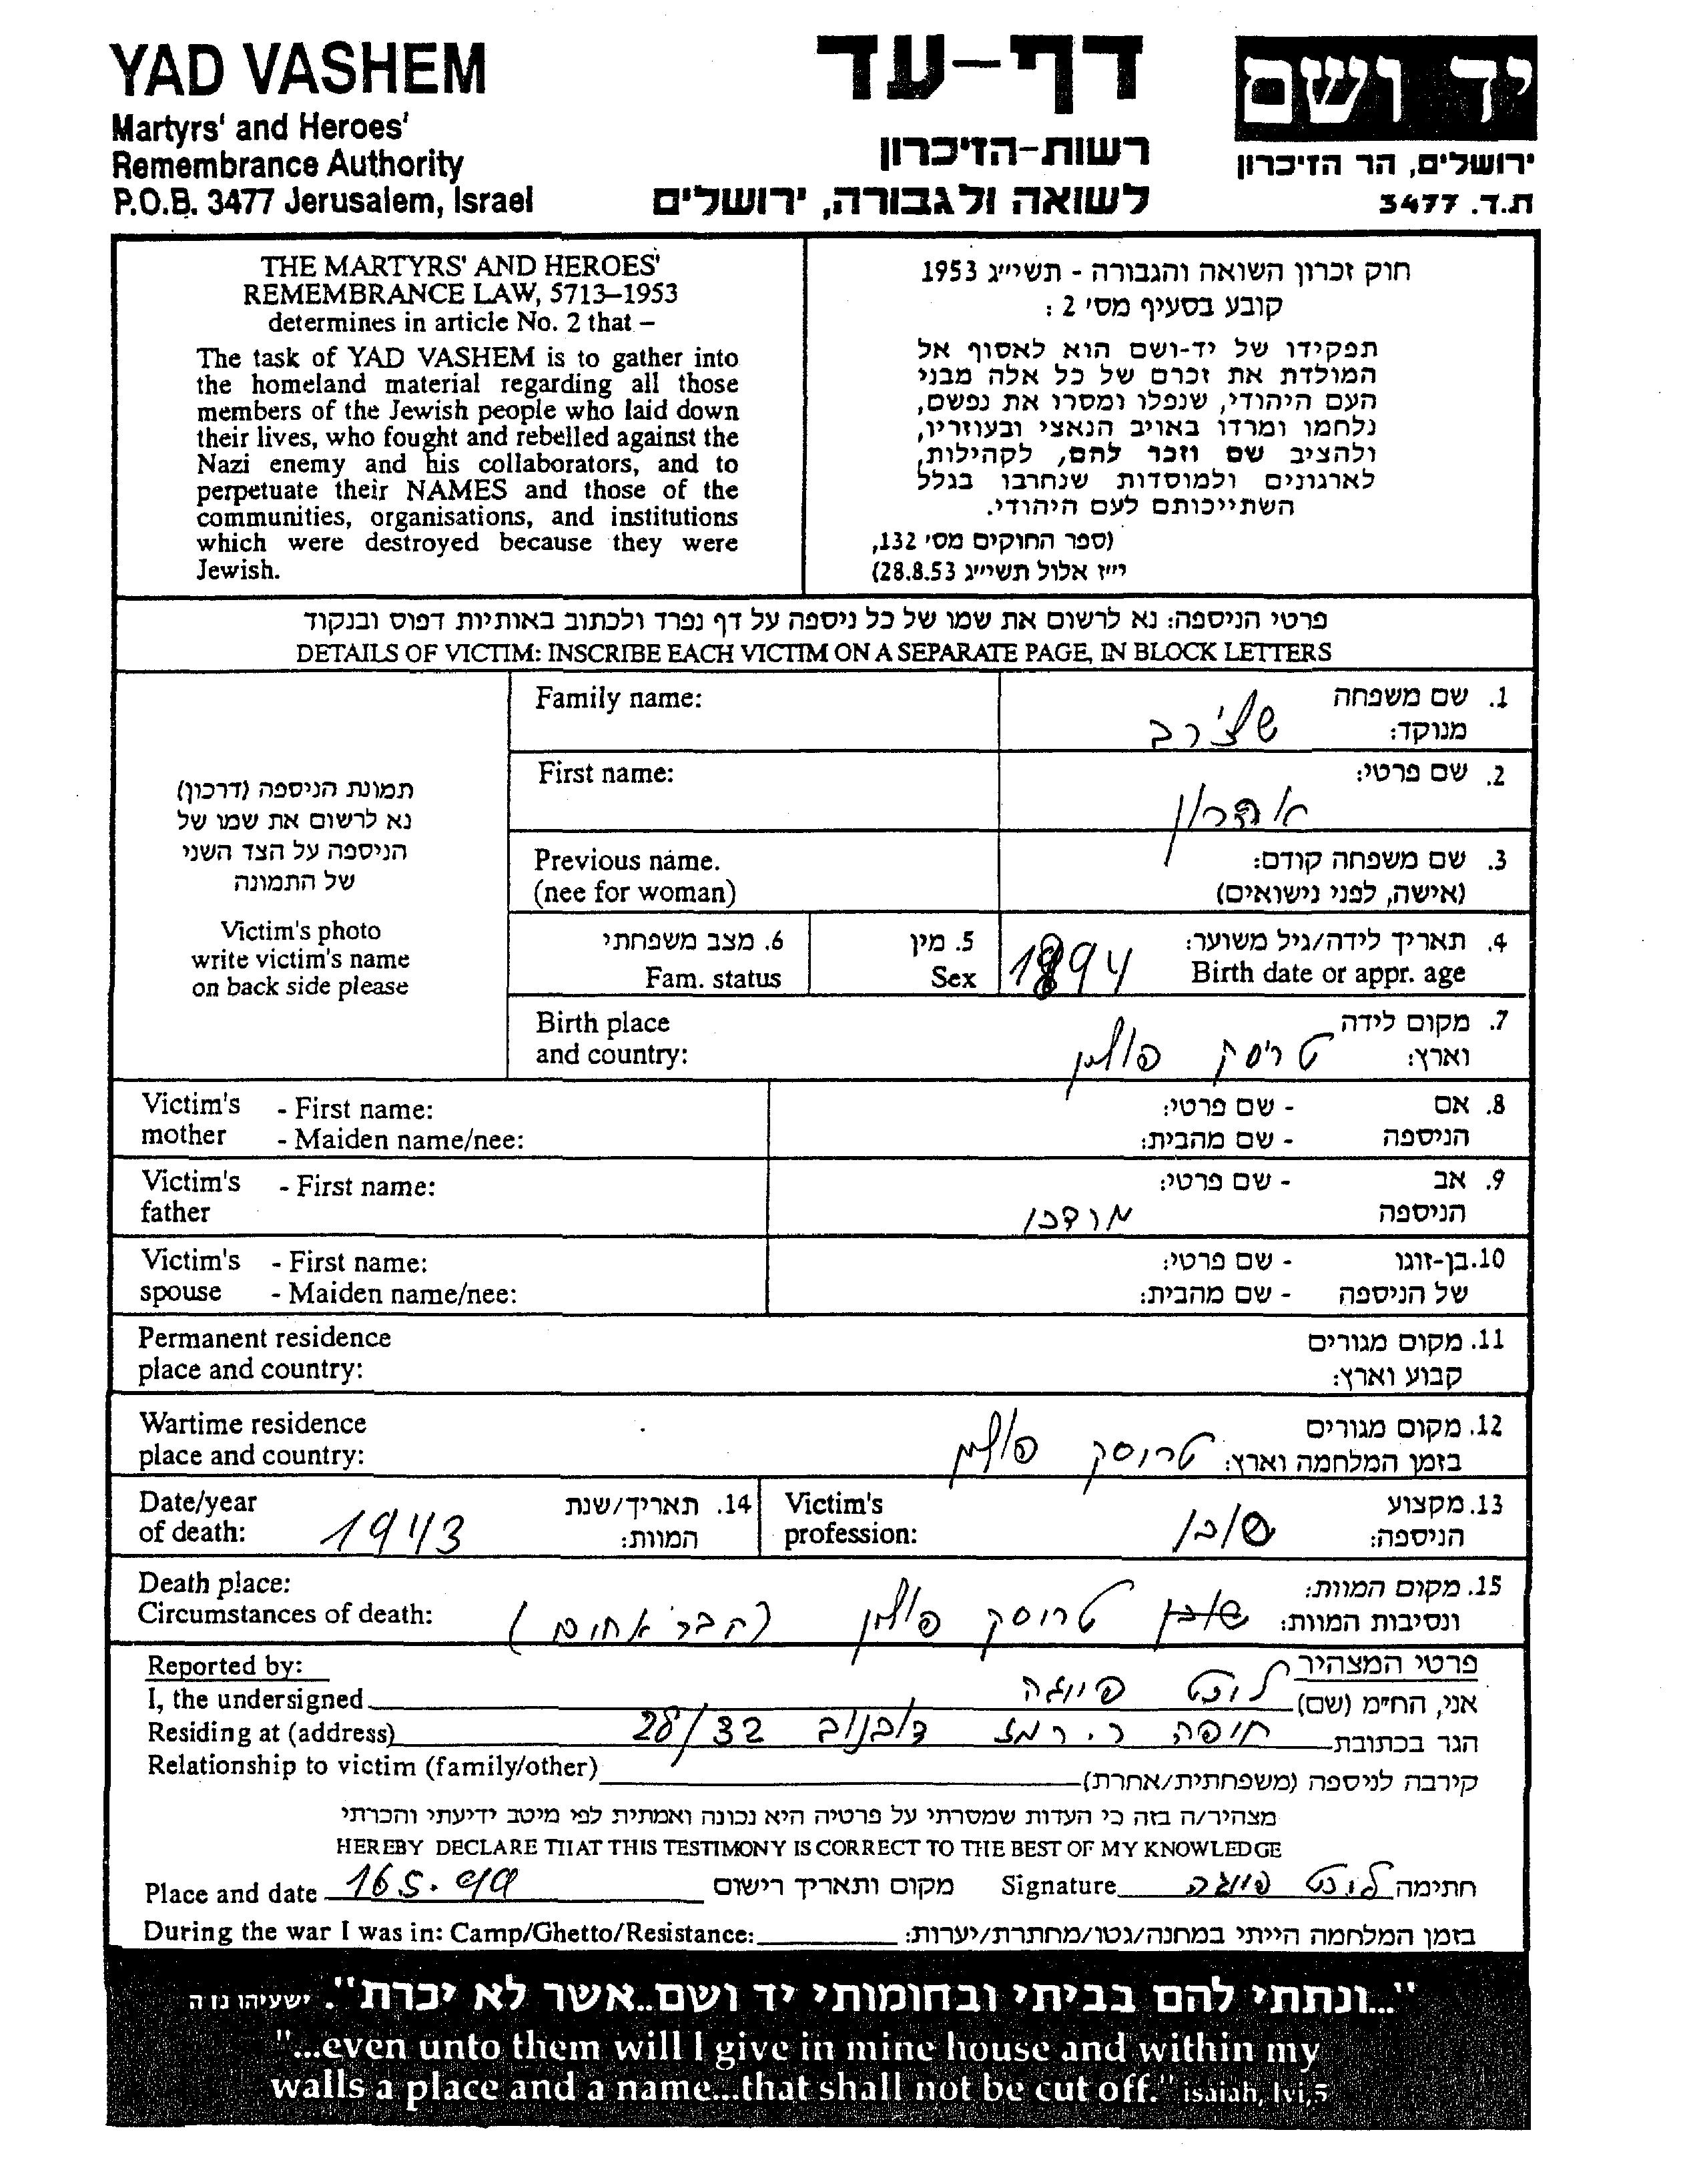 YAD VASHEM
Martyrs' and Heroes'
Remembrance Authority
P.O.B. 3477 Jerusalem, Israel
דף-עד
רשות-הזיכרון
לשואה ולגבורה, ירושלים
יד ושם
ירושלים, הר הזיכרון
ת.ד. 3477
THE MARTYRS' AND HEROES'
REMEMBRANCE LAW, 5713–1953
determines in article No. 2 that –
The task of YAD VASHEM is to gather into
the homeland material regarding all those
members of the Jewish people who laid down
their lives, who fought and rebelled against the
Nazi enemy and his collaborators, and to
perpetuate their NAMES and those of the
communities, organisations, and institutions
which were destroyed because they were
Jewish.
חוק זכרון השואה והגבורה - תשי״ג 1953
קובע בסעיף מס׳ 2 :
תפקידו של יד-ושם הוא לאסוף אל
המולדת את זכרם של כל אלה מבני
העם היהודי, שנפלו ומסרו את נפשם,
נלחמו ומרדו באויב הנאצי ובעוזריו,
ולהציב שם וזכר להם, לקהילות,
לארגונים ולמוסדות שנחרבו בגלל
השתייכותם לעם היהודי.
(ספר החוקים מס׳ 132,
י״ז אלול תשי״ג 28.8.53)
פרטי הניספה: נא לרשום את שמו של כל ניספה על דף נפרד ולכתוב באותיות דפוס ובנקוד
DETAILS OF VICTIM: INSCRIBE EACH VICTIM ON A SEPARATE PAGE, IN BLOCK LETTERS
תמונת הניספה (דרכון)
נא לרשום את שמו של
הניספה על הצד השני
של התמונה
Victim's photo
write victim's name
on back side please
Family name:
1. שם משפחה
מנוקד:
First name:
2. שם פרטי:
אהרון
Previous name.
(nee for woman)
3. שם משפחה קודם:
(אישה, לפני נישואים)
6. מצב משפחתי
Fam. status
5. מין
Sex
4. תאריך לידה/גיל משוער:
Birth date or appr. age
1894
Birth place
and country:
7. מקום לידה
וארץ:
טריסק פולין
Victim's mother
- First name:
- Maiden name/nee:
8. אם הניספה
- שם פרטי:
- שם מהבית:
Victim's father
- First name:
9. אב הניספה
- שם פרטי:
מרדכי
Victim's spouse
- First name:
- Maiden name/nee:
10. בן-זוגו של הניספה
- שם פרטי:
- שם מהבית:
Permanent residence
place and country:
11. מקום מגורים
קבוע וארץ:
Wartime residence
place and country:
12. מקום מגורים
בזמן המלחמה וארץ: טרוסק פולין
Date/year
of death:
1943
14. תאריך/שנת
המוות:
Victim's
profession:
13. מקצוע
הניספה:
Death place:
Circumstances of death:
15. מקום המוות:
ונסיבות המוות:
טרוסק פולין (קבר אחים)
Reported by:
פרטי המצהיר
I, the undersigned
אני, הח״מ (שם)
Residing at (address)
הגר בכתובת
חיפה רמז 28/32
Relationship to victim (family/other)
קירבה לניספה (משפחתית/אחרת)
מצהיר/ה בזה כי העדות שמסרתי על פרטיה היא נכונה ואמתית לפי מיטב ידיעתי והכרתי
HEREBY DECLARE THAT THIS TESTIMONY IS CORRECT TO THE BEST OF MY KNOWLEDGE
Place and date 16.5.99 מקום ותאריך רישום
Signature חתימה
During the war I was in: Camp/Ghetto/Resistance:
בזמן המלחמה הייתי במחנה/גטו/מחתרת/יערות:
"...ונתתי להם בביתי ובחומותי יד ושם..אשר לא יכרת". ישעיהו נו ה
"...even unto them will I give in mine house and within my
walls a place and a name...that shall not be cut off." isaiah, lvi,5